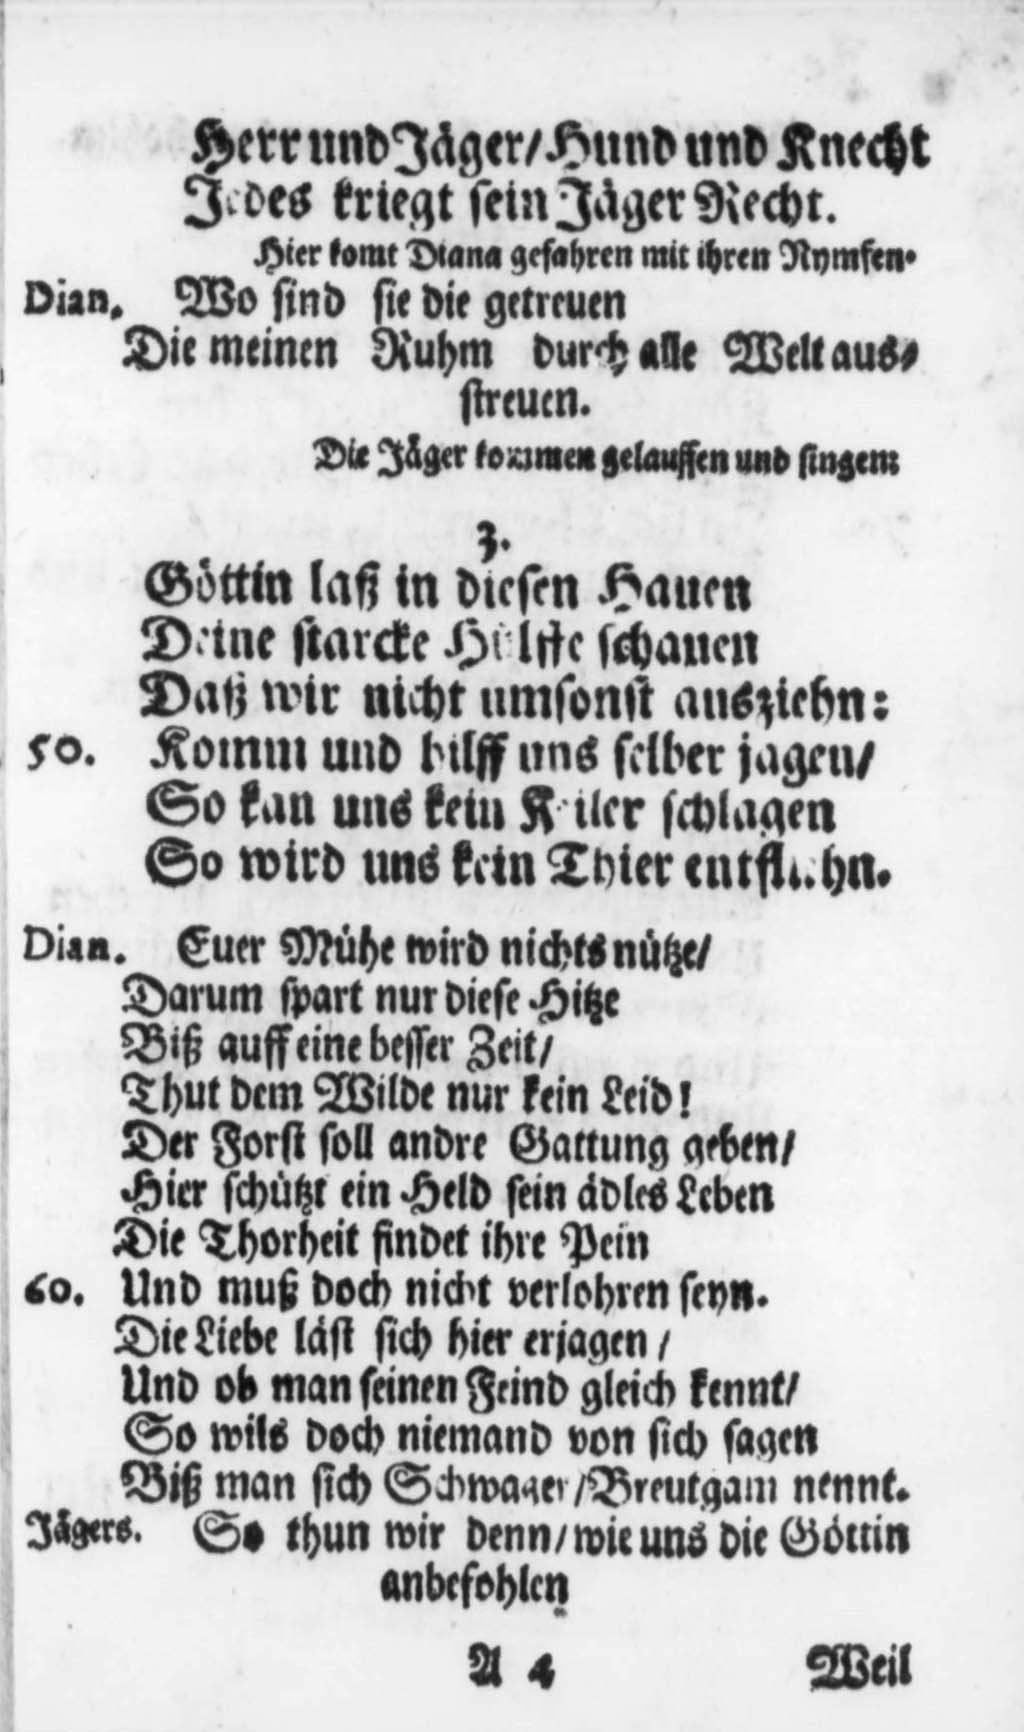 Herr und Jäger/ Hund und Knecht
Jedes kriegt sein Jäger Recht.
Hier komt Diana gefahren mit ihren Nymfen.
Dian. Wo sind sie die getreuen
Die meinen Ruhm durch alle Welt aus-
streuen.
Die Jäger kommen gelauffen und singen:
3.
Göttin laß in diesen Hauen
Deine starcke Hülffe schauen
Daß wir nicht umsonst ausziehn:
50. Komm und hilff uns selber jagen/
So kan uns kein Keiler schlagen
So wird uns kein Thier entfliehn.
Dian. Euer Mühe wird nichts nütze/
Darum spart nur diese Hitze
Biß auff eine besser Zeit/
Thut dem Wilde nur kein Leid!
Der Forst soll andre Gattung geben/
Hier schützt ein Held sein ädles Leben
Die Thorheit findet ihre Pein
60. Und muß doch nicht verlohren seyn.
Die Liebe läst sich hier erjagen/
Und ob man seinen Feind gleich kennt/
So wils doch niemand von sich sagen
Biß man sich Schwager/Breutgam nennt.
Jägers. So thun wir denn/wie uns die Göttin
anbefohlen
A 4 Weil